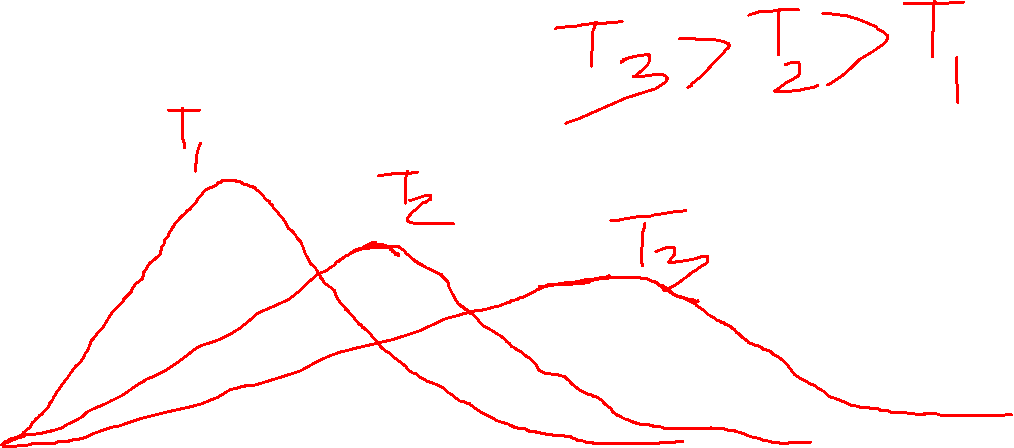 T3 > T2 > T1
T1
T2
T3